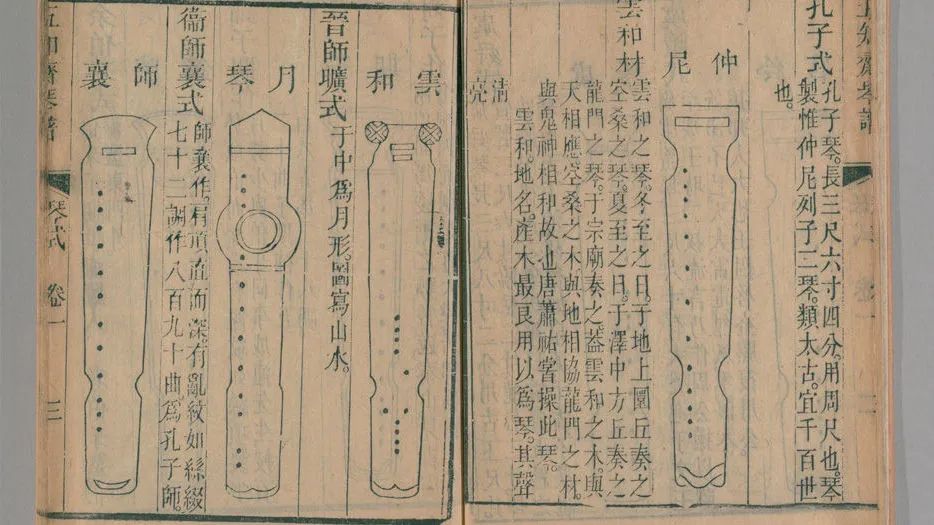 五知齋琴譜
孔子式 孔子琴。長三尺六寸四分。用周尺也。琴
製惟仲尼列子二琴。類太古。宜千百世
也。
仲尼
雲和材 雲和之琴。冬至之日。于地上圜丘奏之
空桑之琴。夏至之日。于澤中方丘奏之
龍門之琴。于宗廟奏之。葢雲和之木。與
天相應。空桑之木。與地相協。龍門之材。
與鬼神相和故也。唐蕭祐嘗操此琴。
雲和。地名。產木最良。用以爲琴。其聲
清亮
雲和
晉師曠式 于中爲月形。圖寫山水。
月琴
衞師襄式 師襄作。肩頂直而深。有亂紋如絲綴
七十二調作八百九十曲爲孔子師。
師襄
五知齋琴譜 琴式 卷一 三